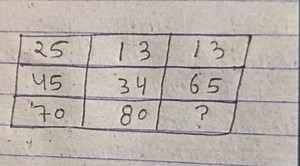 25 13 13
45 34 65
70 80 ?